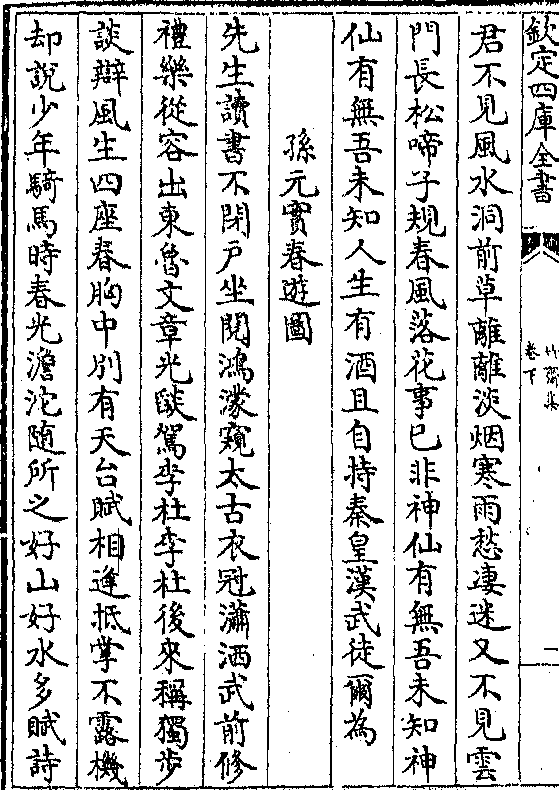 欽定四庫全書
竹齋集
卷下
一
君不見風水洞前草離離淡烟寒雨愁凄迷又不見雲
門長松啼子規春風落花事已非神仙有無吾未知神
仙有無吾未知人生有酒且自持秦皇漢武徒爾為
孫元實春遊圖
先生讀書不閉戸坐閱鴻濛窺太古衣冠瀟洒武前修
禮樂從容出東魯文章光燄駕李杜李杜後來稱獨步
談辯風生四座春胸中别有天台賦相逢抵掌不露機
却說少年騎馬時春光澹沱随所之好山好水多賦詩